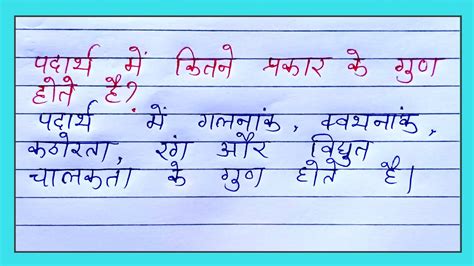 पदार्थ में कितने प्रकार के गुण
होते है?
पदार्थ में गलनांक, क्वथनांक,
कठोरता, रंग और विद्युत
चालकता के गुण होते है।